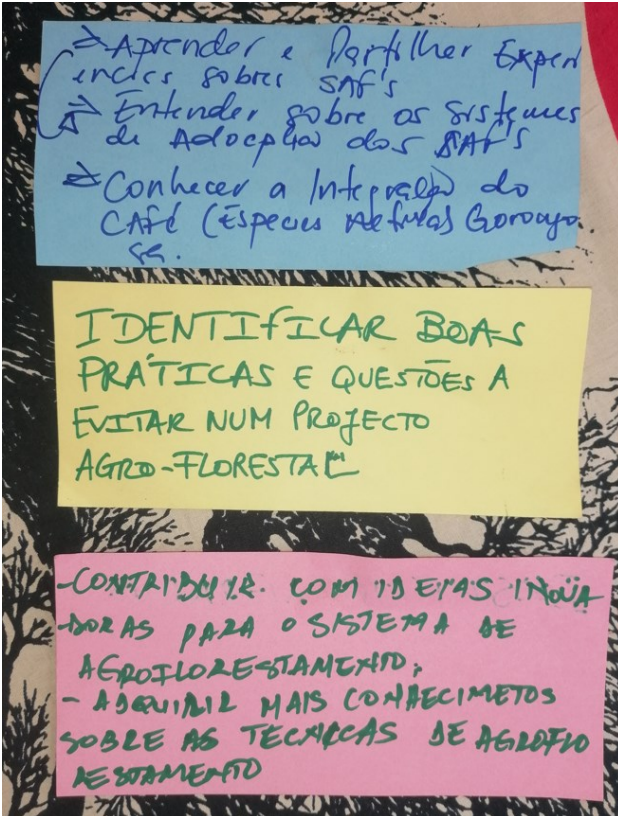 ⇒ Aprender e Partilher Experi
encies sobres SAF's
⇒ Entender sobre os Sistemes
de Adocphão dos SAF's
⇒ Conhecer a Integração do
CAfé (Espécies
IDENTIFICAR BOAS
PRÁTICAS E QUESTÕES A
EVITAR NUM PROJECTO
AGRO-FLORESTAL
-CONTRIBUIR. COM IDEIAS INOVA
-DORAS PARA O SISTEMA DE
AGROFLORESTAMENTO;
- ADQUIRIR MAIS CONHECIMETOS
SOBRE AS TECNICAS DE AGROFLO
RESTAMENTO